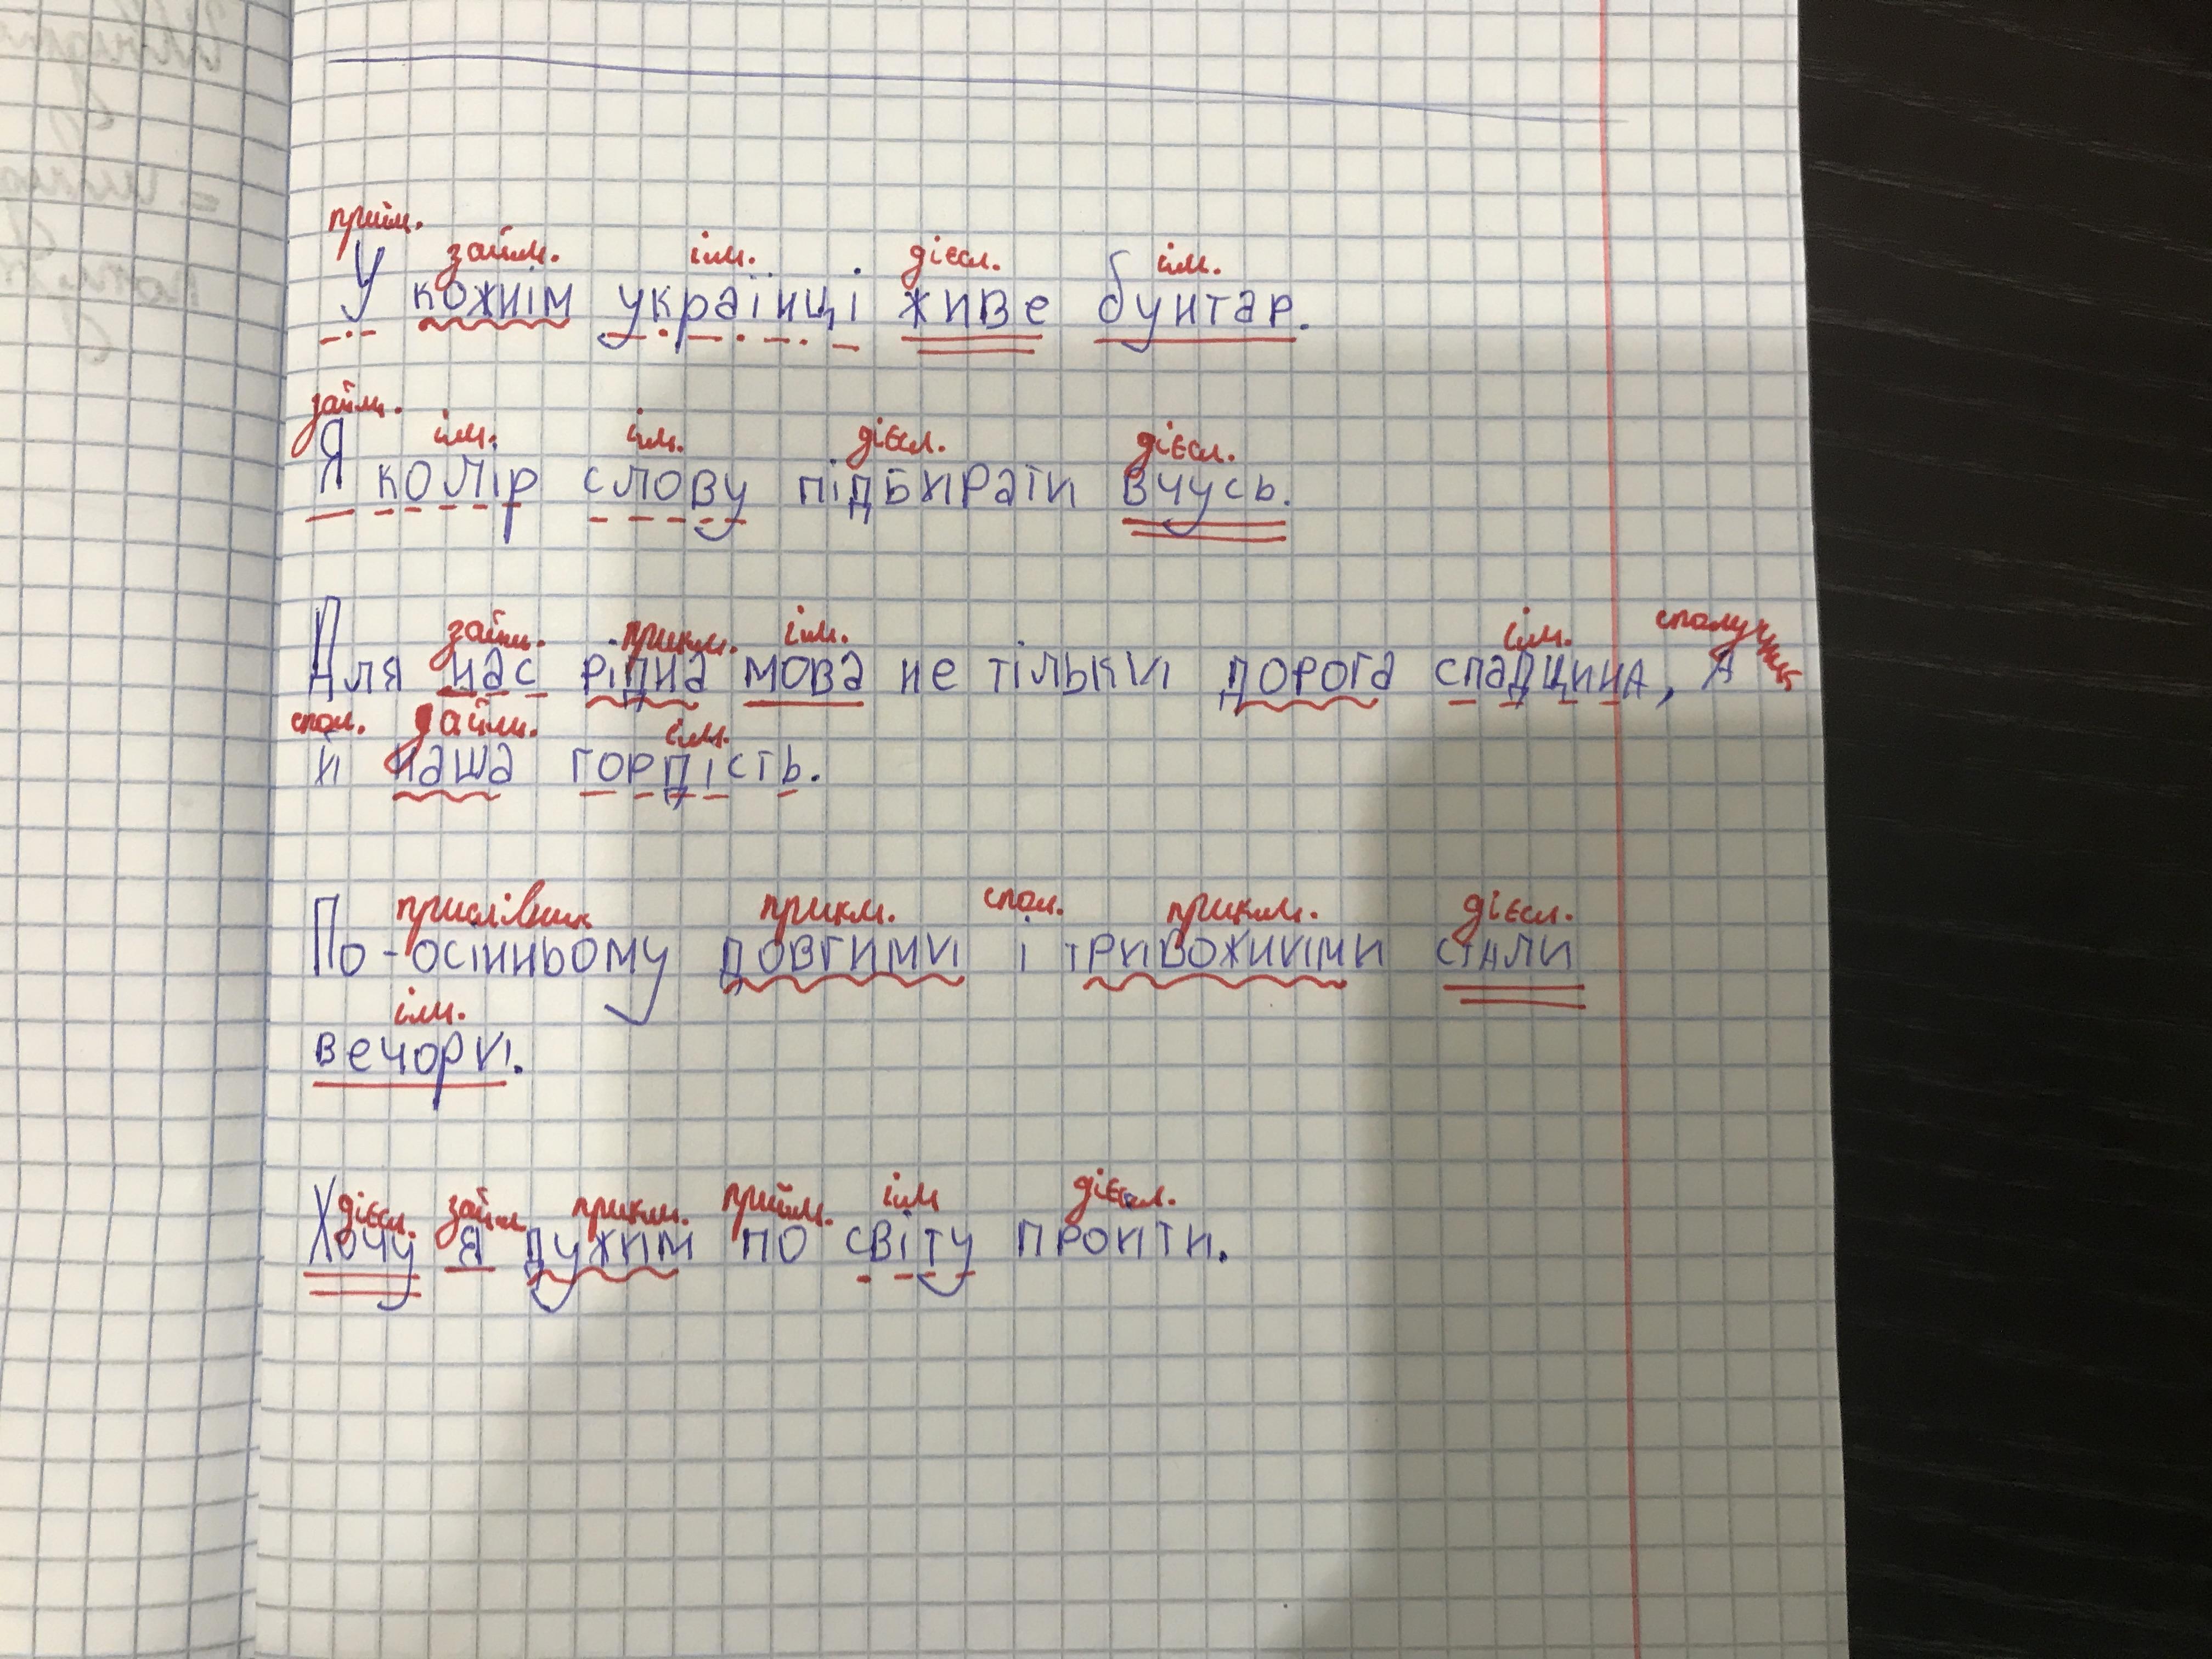 прийм. займ. ім. дієсл. ім.
У кожнім українці живе бунтар.
займ. ім. ім. дієсл. дієсл.
Я колір слову підбирати вчусь.
займ. прикм. ім. ім. сполучник
Для нас рідна мова не тільки дорога спадщина, а
спол. займ. ім.
й наша гордість.
прислівник прикм. спол. прикм. дієсл.
По-осінньому довгими і тривожними стали
ім.
вечори.
дієсл. займ. прикм. прийм. ім дієсл.
Хочу я дужим по світу пройти.